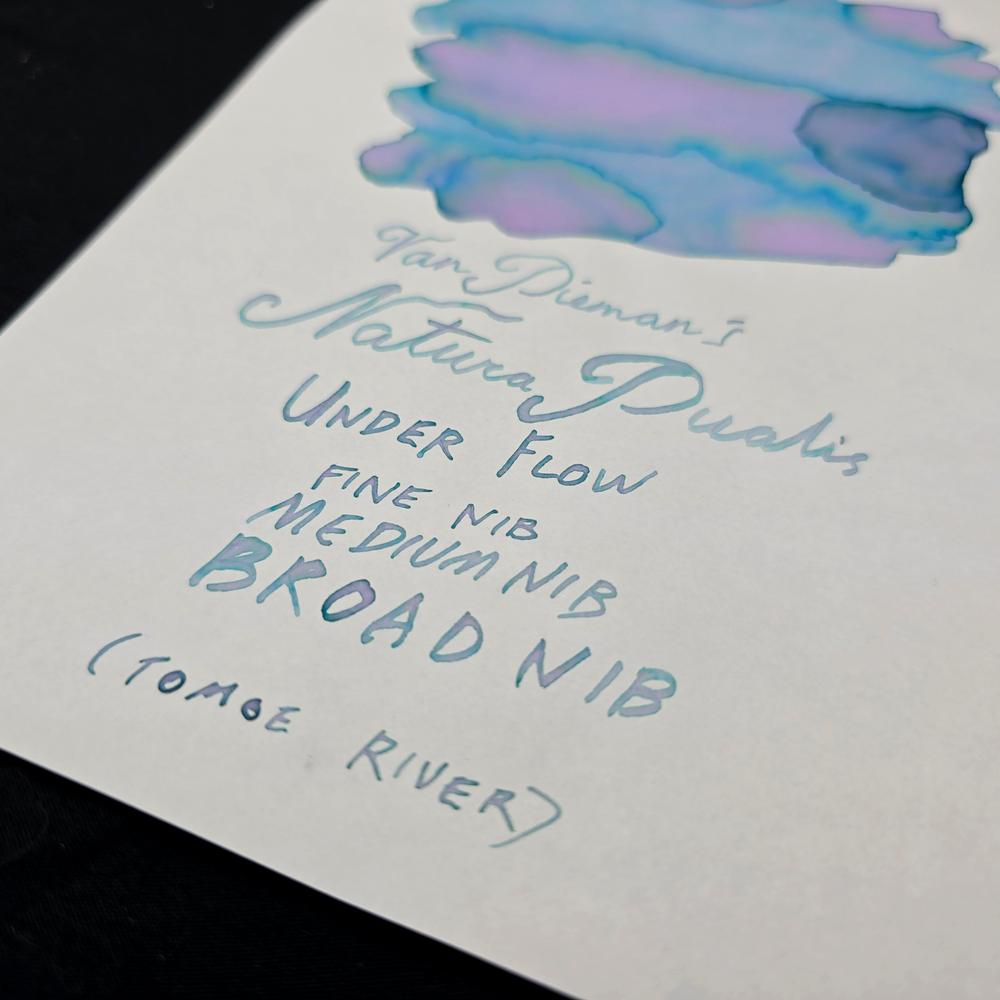 Van Dieman's
Natura Dualis
UNDER FLOW
FINE NIB
MEDIUM NIB
BROAD NIB
(TOMOE RIVER)